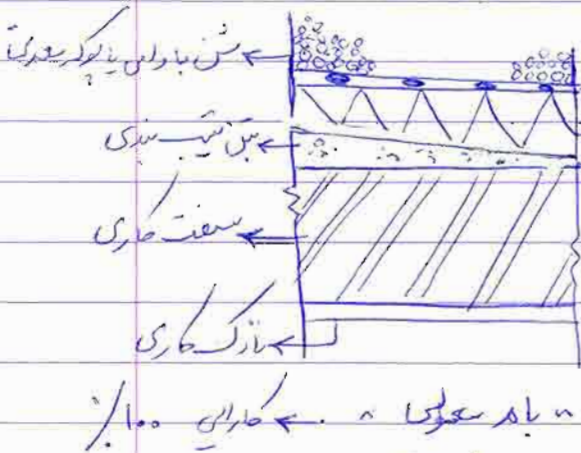 شن بادامی یا پوکه معدنی
بتن شیب بندی
سفت کاری
نازک کاری
" بام معمولی " ← کارایی ۱۰۰٪